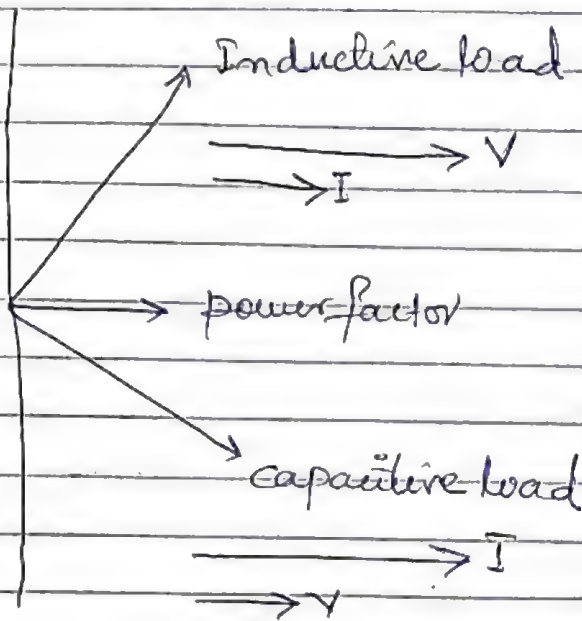 Inductive load
V
I
power factor
capacitive load
I
V